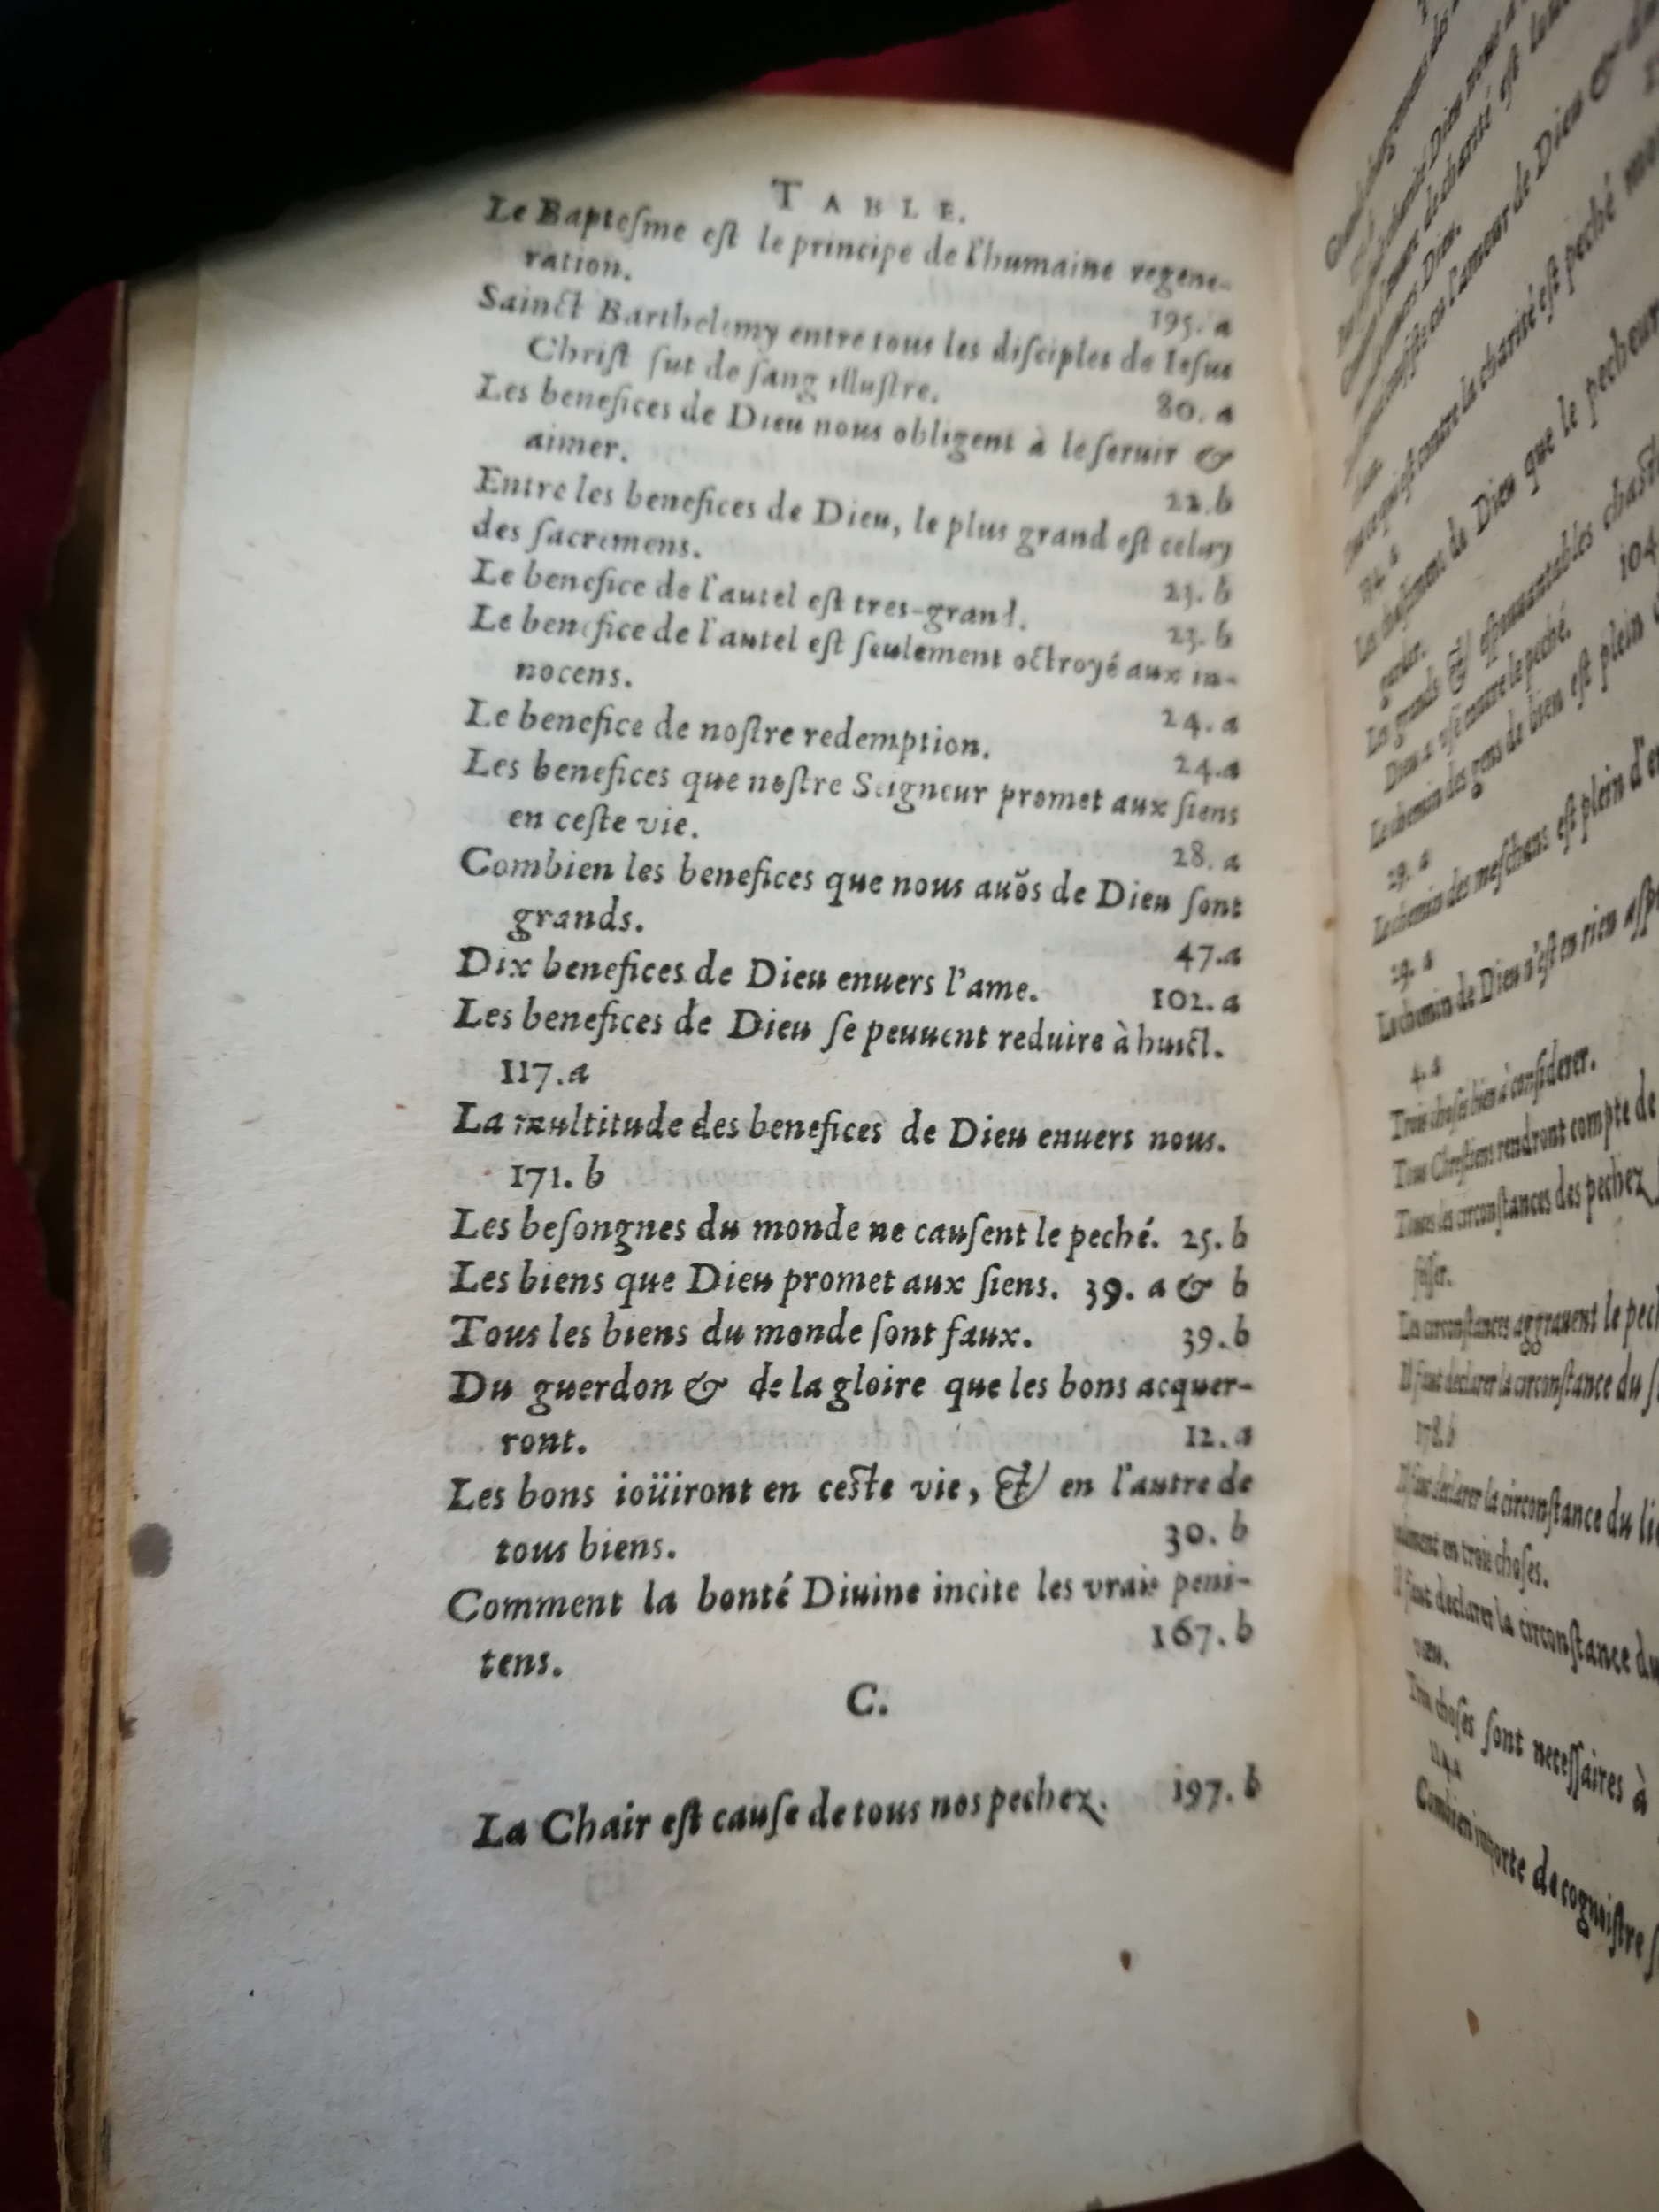 TABLE.
Le Bapteſme eſt le principe de l'humaine regene-
ration. 195. a
Sainct Barthelemy entre tous les diſciples de Ieſus
Chriſt fut de ſang illuſtre. 80. a
Les benefices de Dieu nous obligent à le ſeruir &
aimer. 22. b
Entre les benefices de Dieu, le plus grand eſt celuy
des ſacremens. 23. b
Le benefice de l'autel eſt tres-grand. 23. b
Le benefice de l'autel eſt ſeulement octroyé aux in-
nocens. 24. a
Le benefice de noſtre redemption. 24. a
Les benefices que noſtre Seigneur promet aux ſiens
en ceſte vie. 28. a
Combien les benefices que nous auõs de Dieu ſont
grands. 47. a
Dix benefices de Dieu enuers l'ame. 102. a
Les benefices de Dieu ſe peuuent reduire à huict.
117. a
La multitude des benefices de Dieu enuers nous.
171. b
Les beſongnes du monde ne cauſent le peché. 25. b
Les biens que Dieu promet aux ſiens. 39. a & b
Tous les biens du monde ſont faux. 39. b
Du guerdon & de la gloire que les bons acquer-
ront. 12. a
Les bons ioüiront en ceſte vie, & en l'autre de
tous biens. 30. b
Comment la bonté Diuine incite les vrais peni-
tens. 167. b
C.
La Chair eſt cauſe de tous nos pechez. 197. b
de Dieu &
contre la charité eſt peché
de Dieu que le pecheur
garder.
Les grands & eſpouuantables
104
Dieu a vſé contre le peché.
Le chemin des gens de bien eſt plein
29. a
Le chemin des meſchans eſt plein d'
29. a
Le chemin de Dieu n'eſt en rien
4. a
Trois choſes bien à conſiderer.
Tous Chreſtiens rendront compte de
Toutes les circonſtances des pechez
Les circonſtances aggrauent le
Il faut declarer la circonſtance du
178. b
Il faut declarer la circonſtance du
en trois choſes.
Il faut declarer la circonſtance du
Trois choſes ſont neceſſaires à
114. a
Combien importe de cognoiſtre